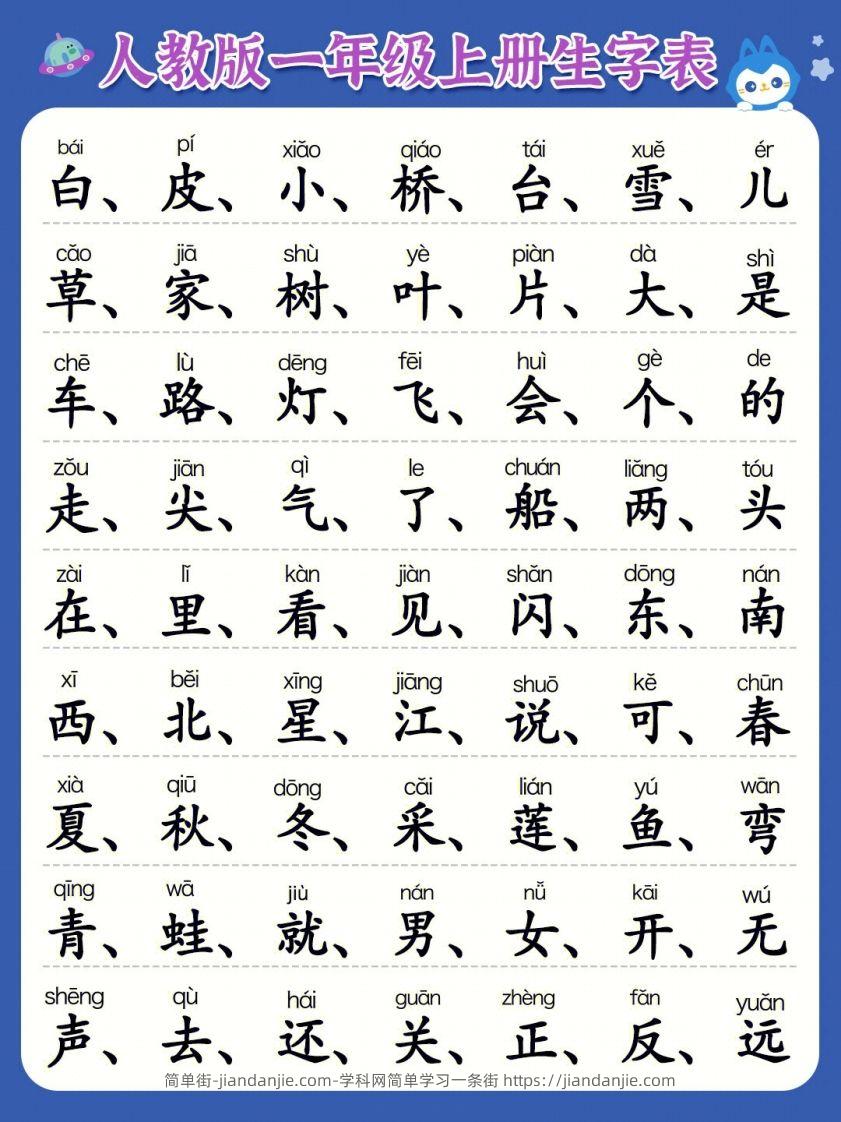 人教版一年级上册生字表
bái pí xiǎo qiáo tái xuě ér
白、皮、小、桥、台、雪、儿
cǎo jiā shù yè piàn dà shì
草、家、树、叶、片、大、是
chē lù dēng fēi huì gè de
车、路、灯、飞、会、个、的
zǒu jiān qì le chuán liǎng tóu
走、尖、气、了、船、两、头
zài lǐ kàn jiàn shǎn dōng nán
在、里、看、见、闪、东、南
xī běi xīng jiāng shuō kě chūn
西、北、星、江、说、可、春
xià qiū dōng cǎi lián yú wān
夏、秋、冬、采、莲、鱼、弯
qīng wā jiù nán nǚ kāi wú
青、蛙、就、男、女、开、无
shēng qù hái guān zhèng fǎn yuǎn
声、去、还、关、正、反、远
简单街-jiandanjie.com-学科网简单学习一条街 https://jiandanjie.com